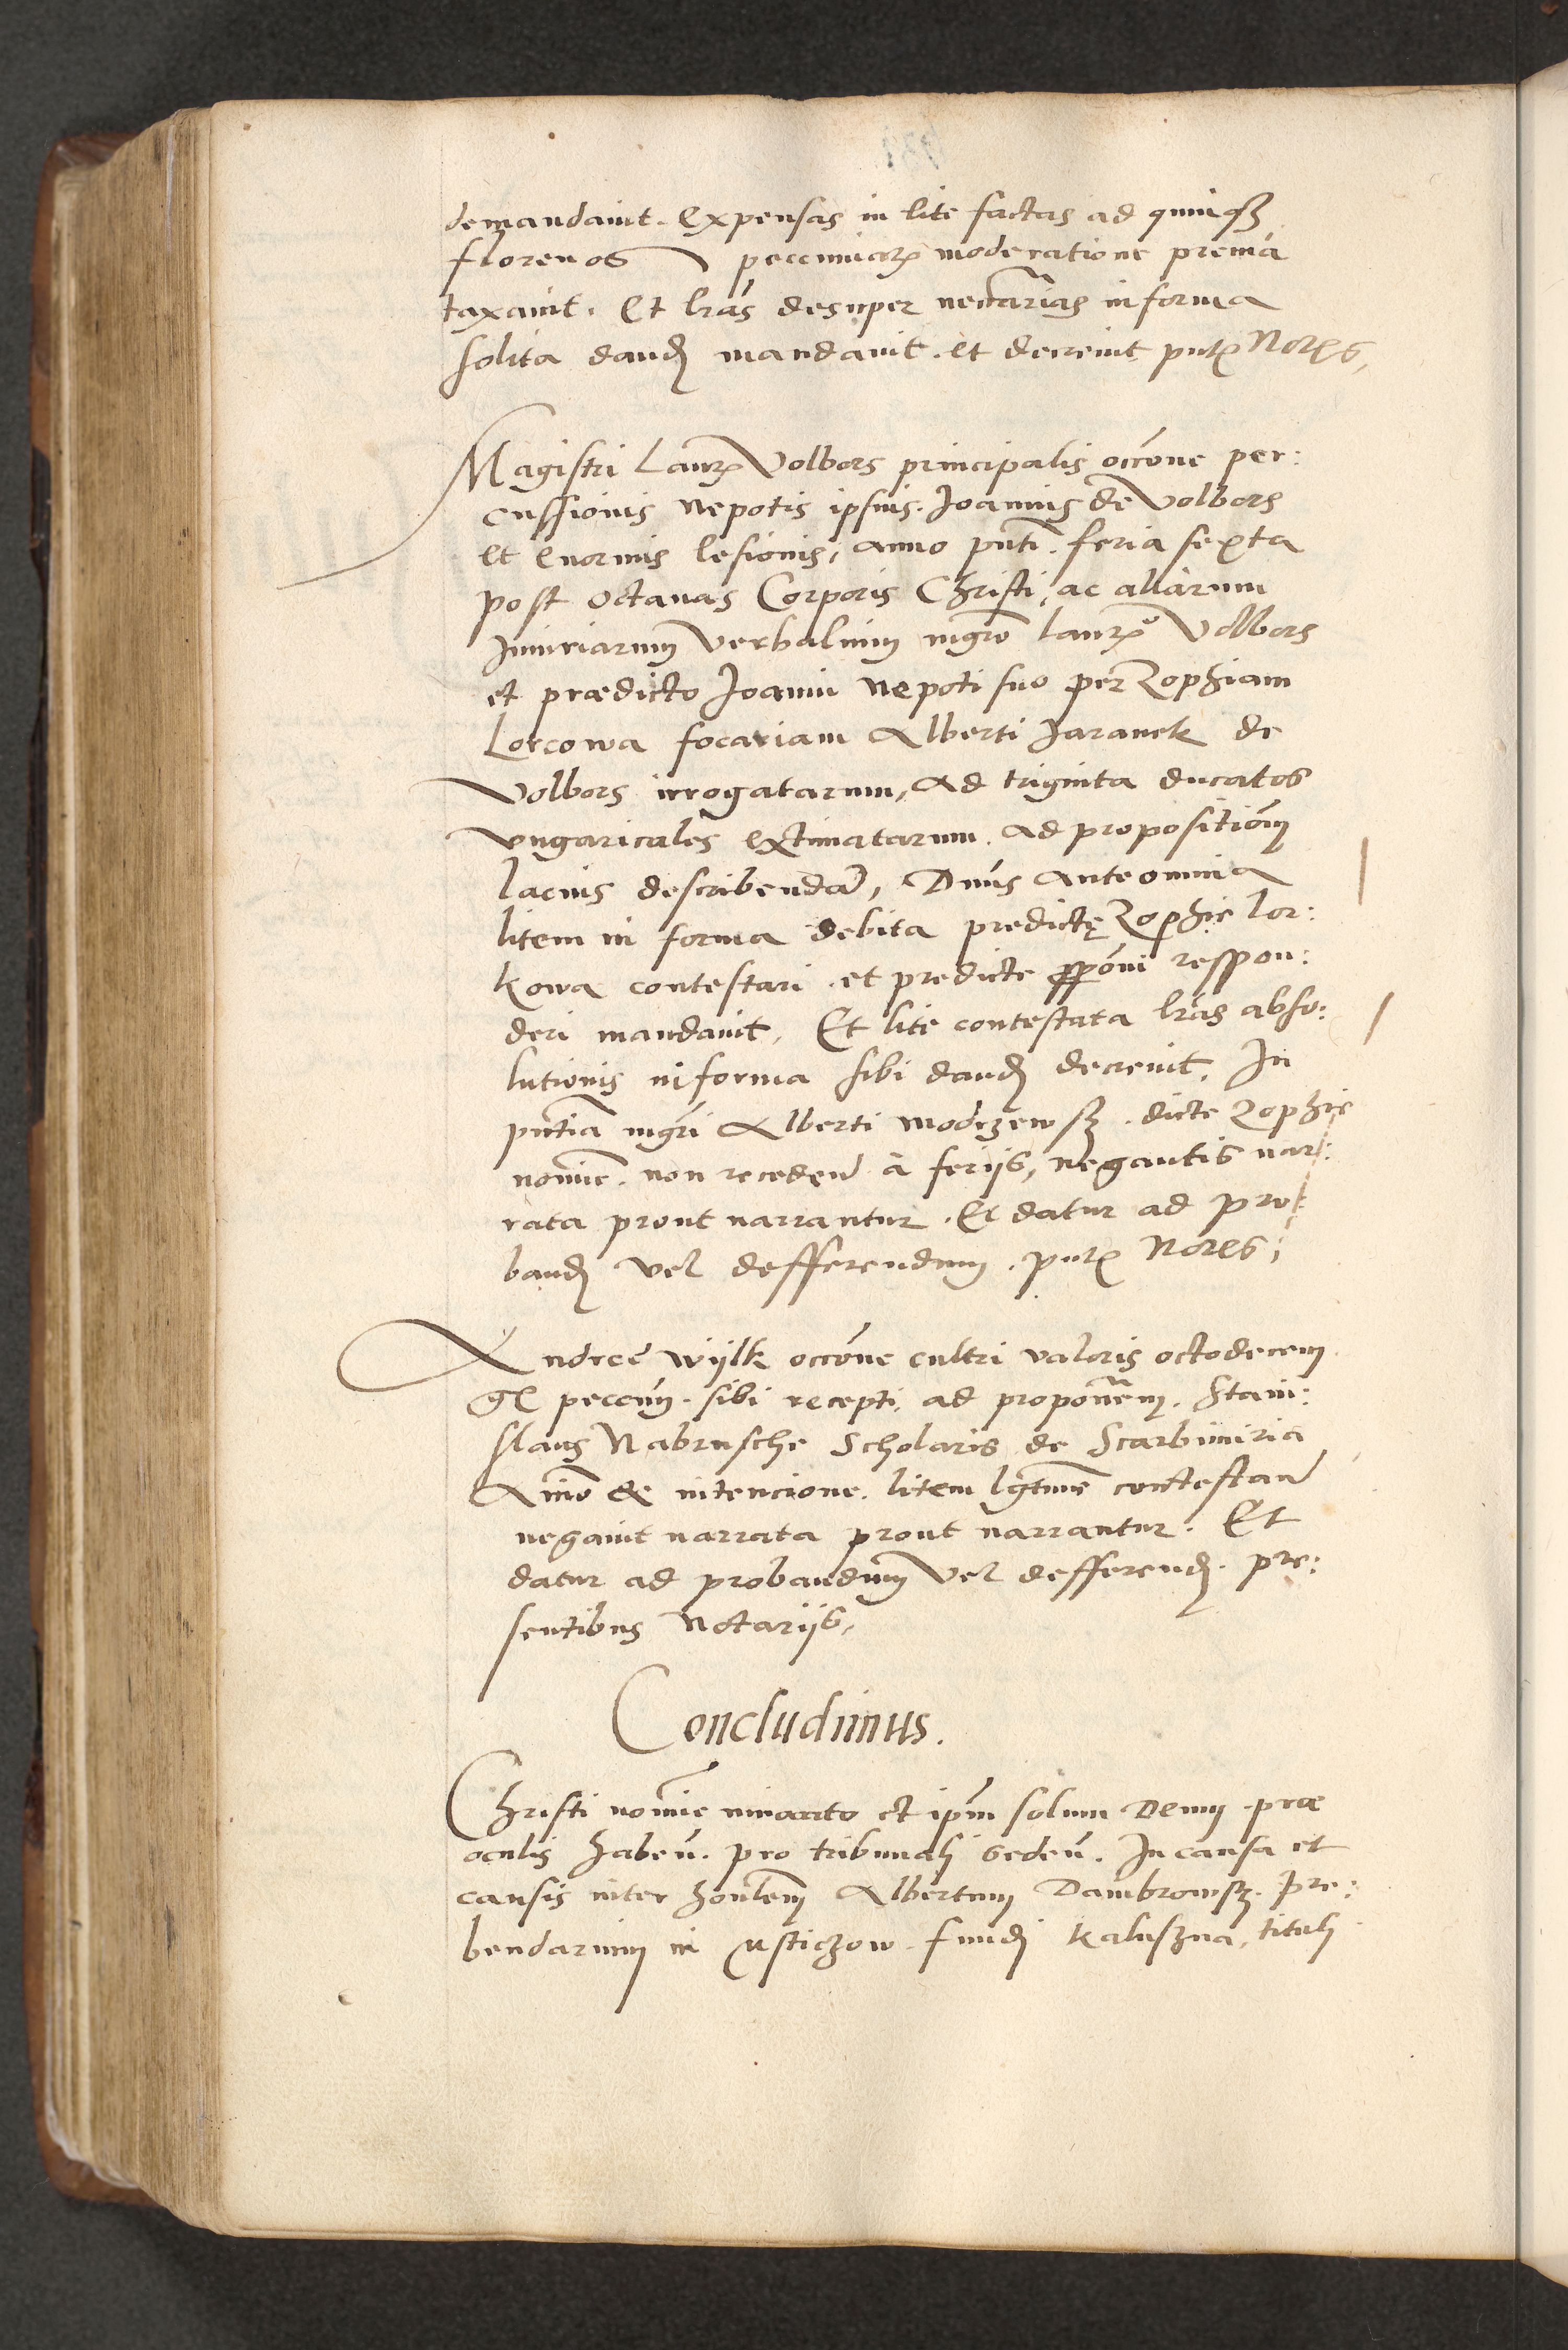 demandauit. Expensas in lite factas ad quinqꝫ
florenos pecuniarꝫ moderatione premia
taxauit. Et lrãs desuper necãrias in forma
solita dandꝭ mandauit. et decreuit pntꝫ Norꝫs,
Magistri Laurꝫ Volbors principalis occõne per:
cussionis nepotis ipsius. Joannis de Volbors
et Enormis lesionis, anno pnti. feria sexta
post octauas Corporis Christi, ac aliarum
Iniuriarum Verbalium mgrõ Laurꝫ Volbors
et prædicto Joanni nepoti suo per Zophiam
Lorcowa focariam Alberti Jaranek de
Volbors irrogatarum, ad triginta ducatos
vngaricales extimatarum. ad propositiõm
lacius describendã, Dnus ante omnia
litem in forma debita predictę Zophie Lor:
kowa contestari. et predicte põni respon:
deri mandauit, Et lite contestata lrãs abso:
lutionis in forma sibi dandꝭ decreuit. In
pntia mgri Alberti Modrzewsꝫ. dicte Zophie
nomine. non receden̄ à ferijs, negantis nar:
rata prout narrantur. Et datur ad pro:
bandꝭ vel defferendum. pntꝫ Norꝫs,
Andree Wijlk occõne cultri valoris octodecem
gꝭ peccun̄. sibi recepti. ad proponẽm. Stani:
slaus Nabrusche Scholaris de Scarbimiria
Animo & intencione. litem lgtime contestan̄
negauit narrata prout narrantur. Et
datur ad probandum vel defferendꝭ. pre:
sentibus Notarijs,
Concludimus.
Christi nomine inuocato et ipm solum Deum. præ
oculis haben̄. pro tribunali seden̄. In causa et
causis inter honblem Albertum Dambrowsꝫ. pre:
bendarium in Usticzow. fundi Kaluszna, tituli